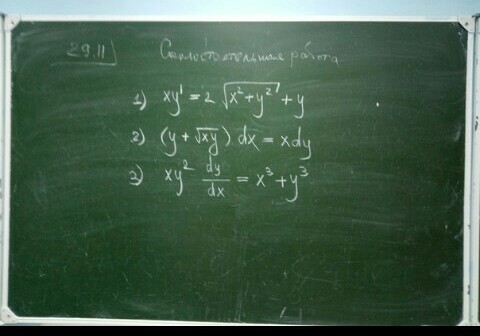 29.11 Самостоятельная работа
1) xy' = 2 √(x² + y²) + y
2) (y + √xy) dx = xdy
3) xy² dy/dx = x³ + y³